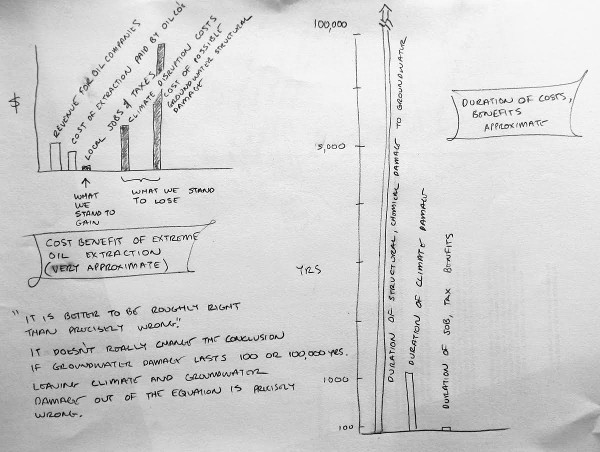 $
REVENUE FOR OIL COMPANIES
COST OF EXTRACTION PAID BY OIL CO'S
LOCAL JOBS & TAXES
CLIMATE DISRUPTION COSTS
COST OF POSSIBLE
GROUNDWATER STRUCTURAL
DAMAGE
WHAT
WE
STAND TO
GAIN
WHAT WE STAND
TO LOSE
COST BENEFIT OF EXTREME
OIL EXTRACTION
(VERY APPROXIMATE)
"IT IS BETTER TO BE ROUGHLY RIGHT
THAN PRECISELY WRONG."
IT DOESN'T REALLY CHANGE THE CONCLUSION
IF GROUNDWATER DAMAGE LASTS 100 OR 100,000 YRS.
LEAVING CLIMATE AND GROUNDWATER
DAMAGE OUT OF THE EQUATION IS PRECISELY
WRONG.
100,000
5,000
YRS
1000
100
DURATION OF STRUCTURAL, CHEMICAL DAMAGE TO GROUNDWATER
DURATION OF CLIMATE DAMAGE
DURATION OF JOB, TAX BENEFITS
DURATION OF COSTS,
BENEFITS
APPROXIMATE